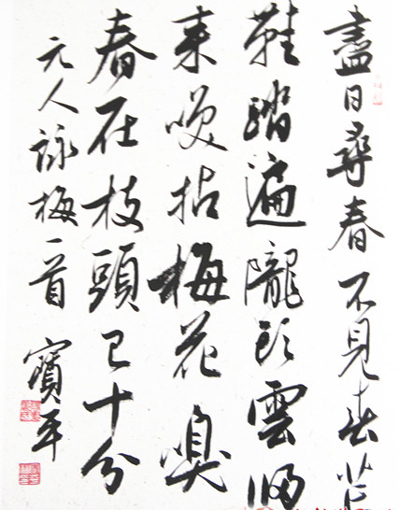 盡日尋春不見春芒
鞋踏遍隴頭雲歸
來笑拈梅花嗅
春在枝頭已十分
元人詠梅一首 寶平